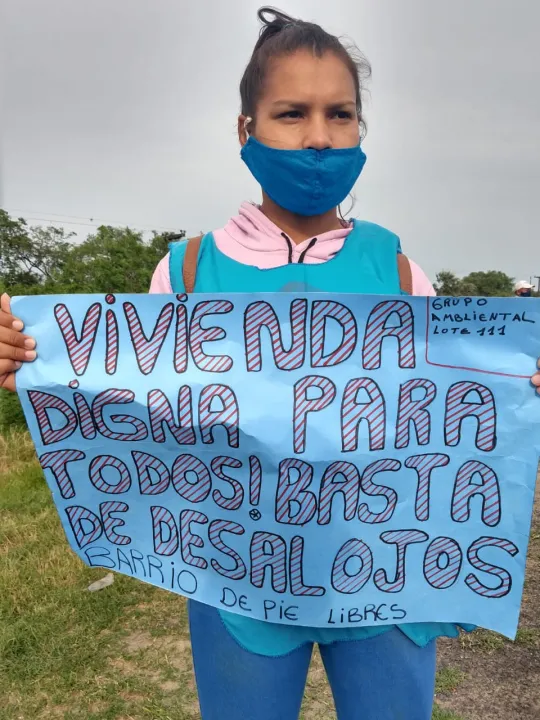 VIVIENDA
DIGNA PARA
TODOS! BASTA
DE DESALOJOS
BARRIO DE PIE LIBRES
GRUPO
AMBLIENTAL
LOTE 111